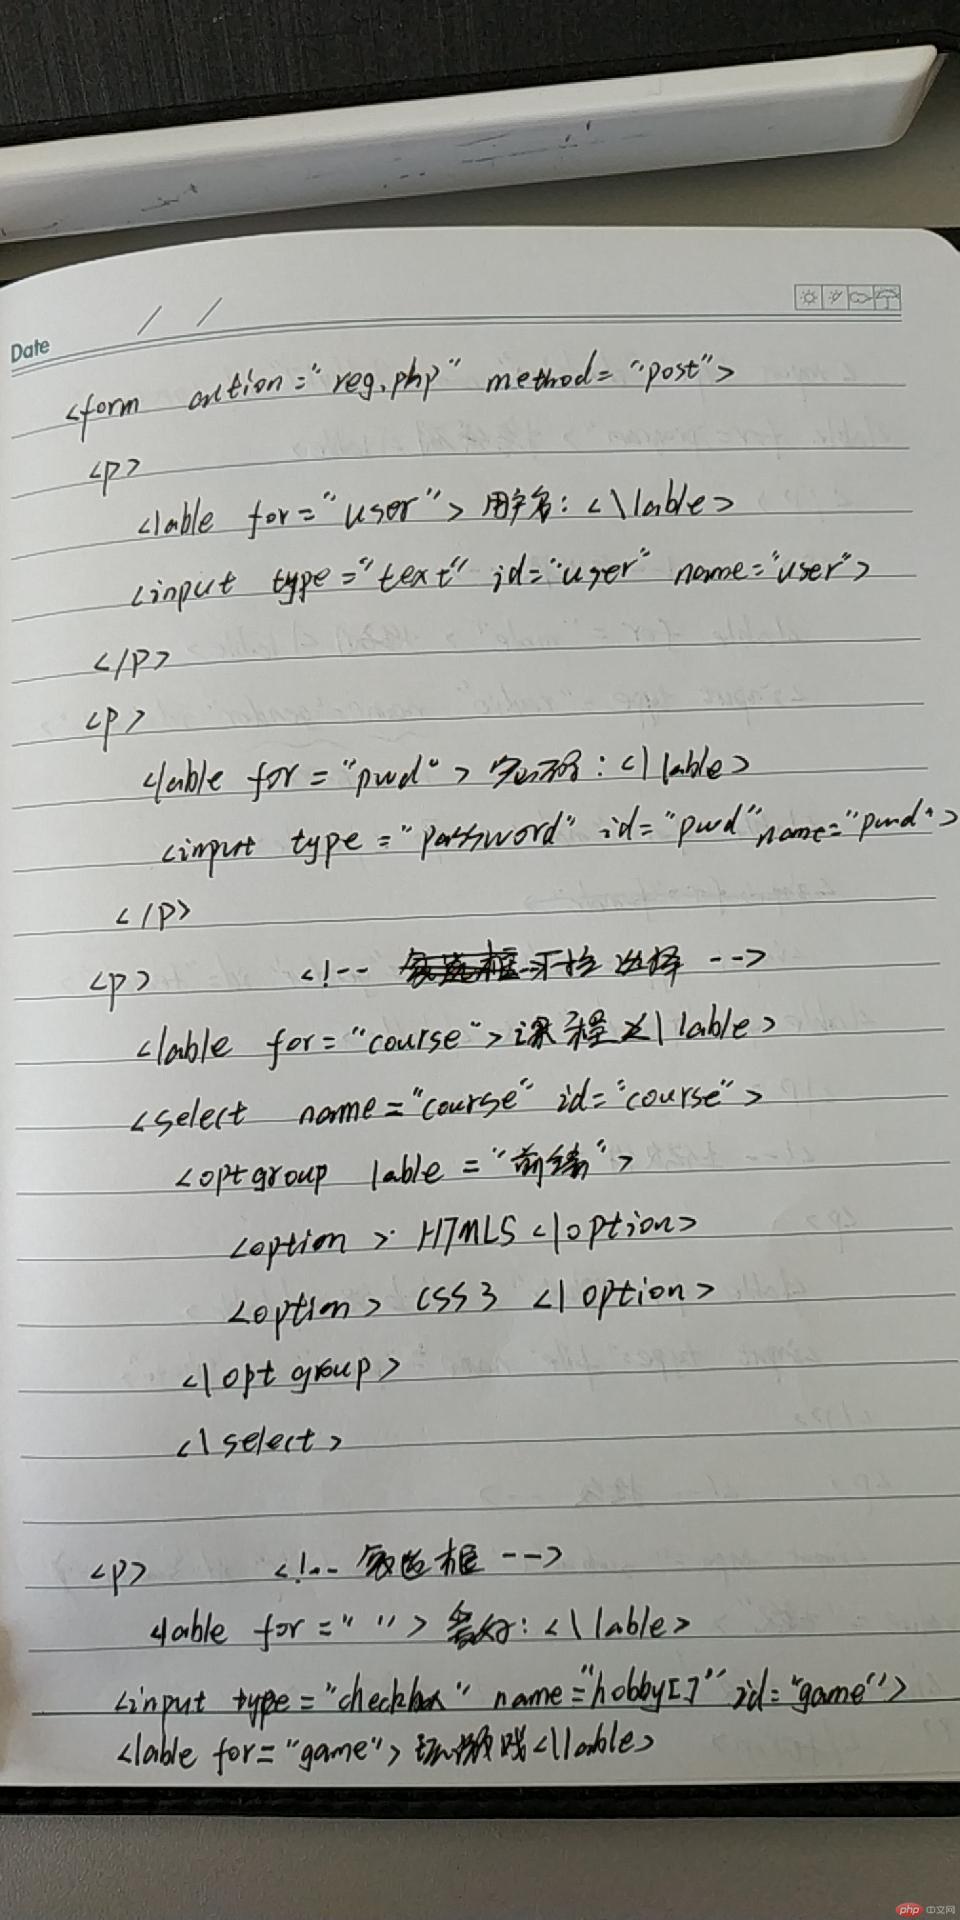 Date / /
<form action="reg.php" method="post">
<p>
<lable for="user">用户名:<\lable>
<input type="text" id="user" name="user">
</p>
<p>
<lable for="pwd">密码:<\lable>
<input type="password" id="pwd" name="pwd">
</p>
<p> <!-- 下拉选择 -->
<lable for="course">课程<\lable>
<select name="course" id="course">
<optgroup lable="前端">
<option> HTML5 </option>
<option> CSS3 </option>
</optgroup>
<\select>
<p> <!-- 复选框 -->
<lable for=" ">爱好:<\lable>
<input type="checkbox" name="hobby[]" id="game">
<lable for="game">玩游戏<\lable>
php 中文网